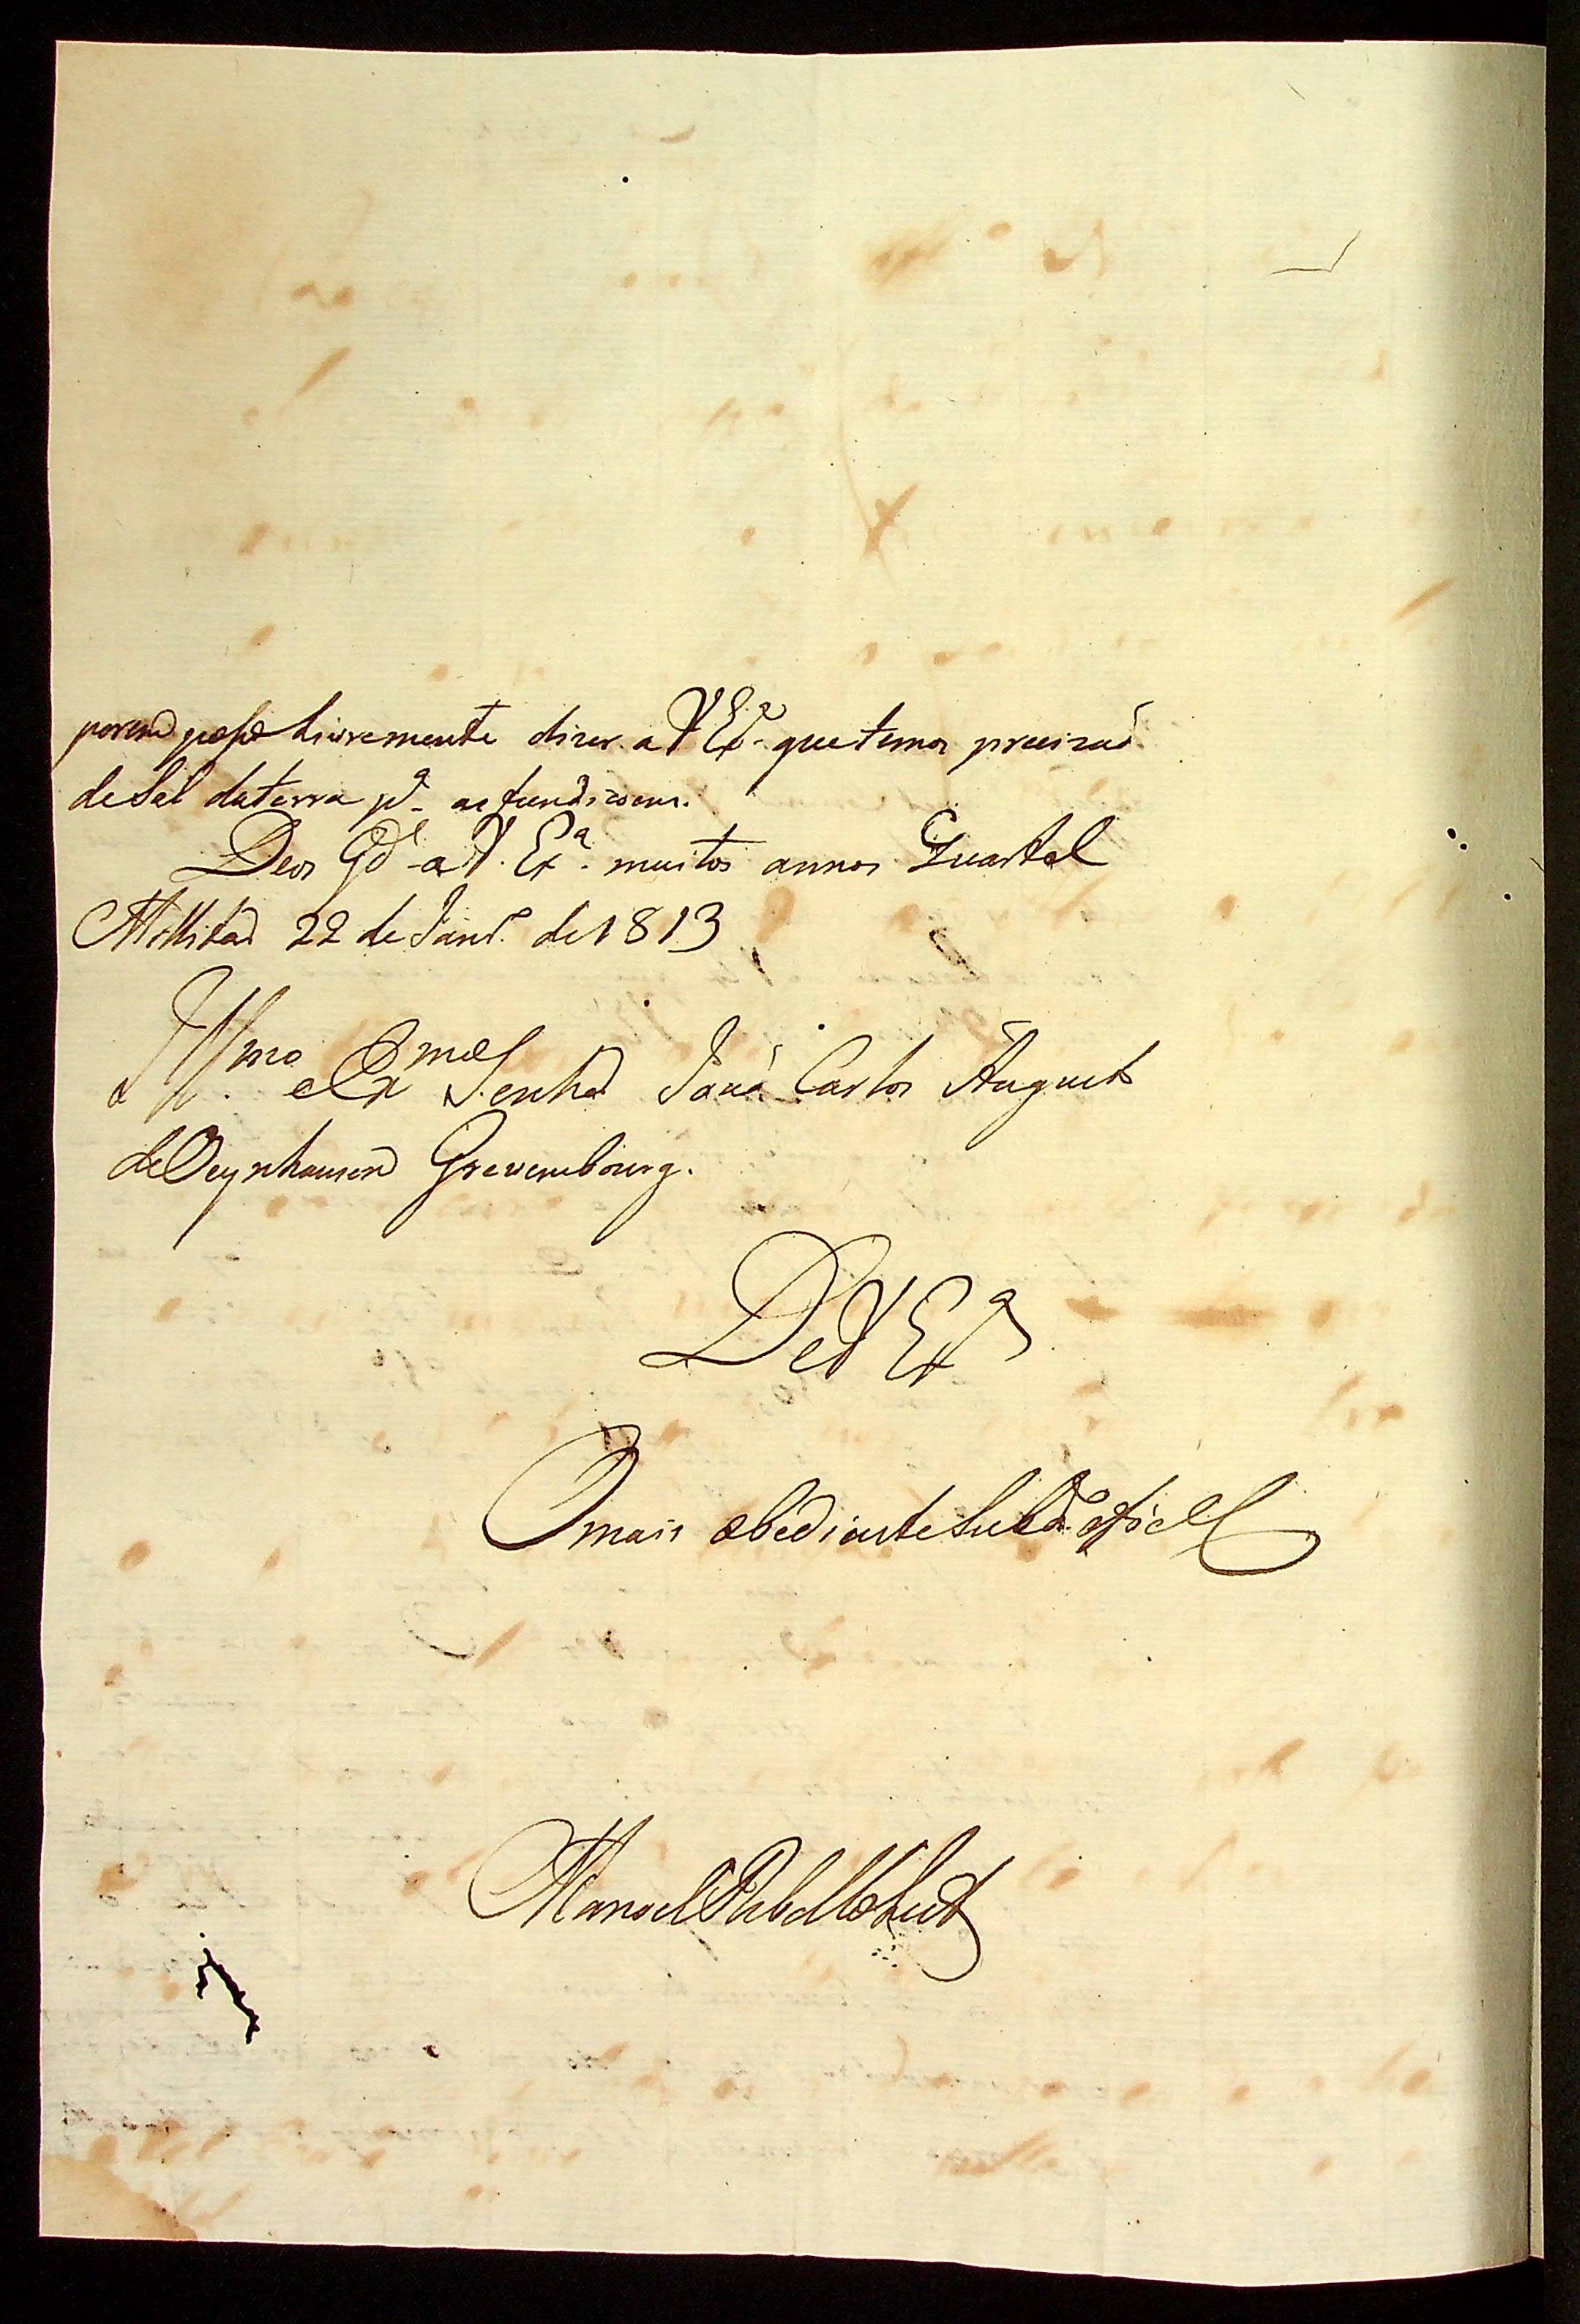 porem posso livremente dizer a V Exª que temos precizaõ
de Sal da terra pª as fundiçoens.
Deos Gde a V. Exª muitos annos Quartel
Millitar 22 de Janrº de 1813
Illmo e Exmo Senhor Joaõ Carlos Augusto
de Oeynhausen Grevembourg.
De V Exª
O mais obediente Subdº e fiel
Manoel Rebello Leite